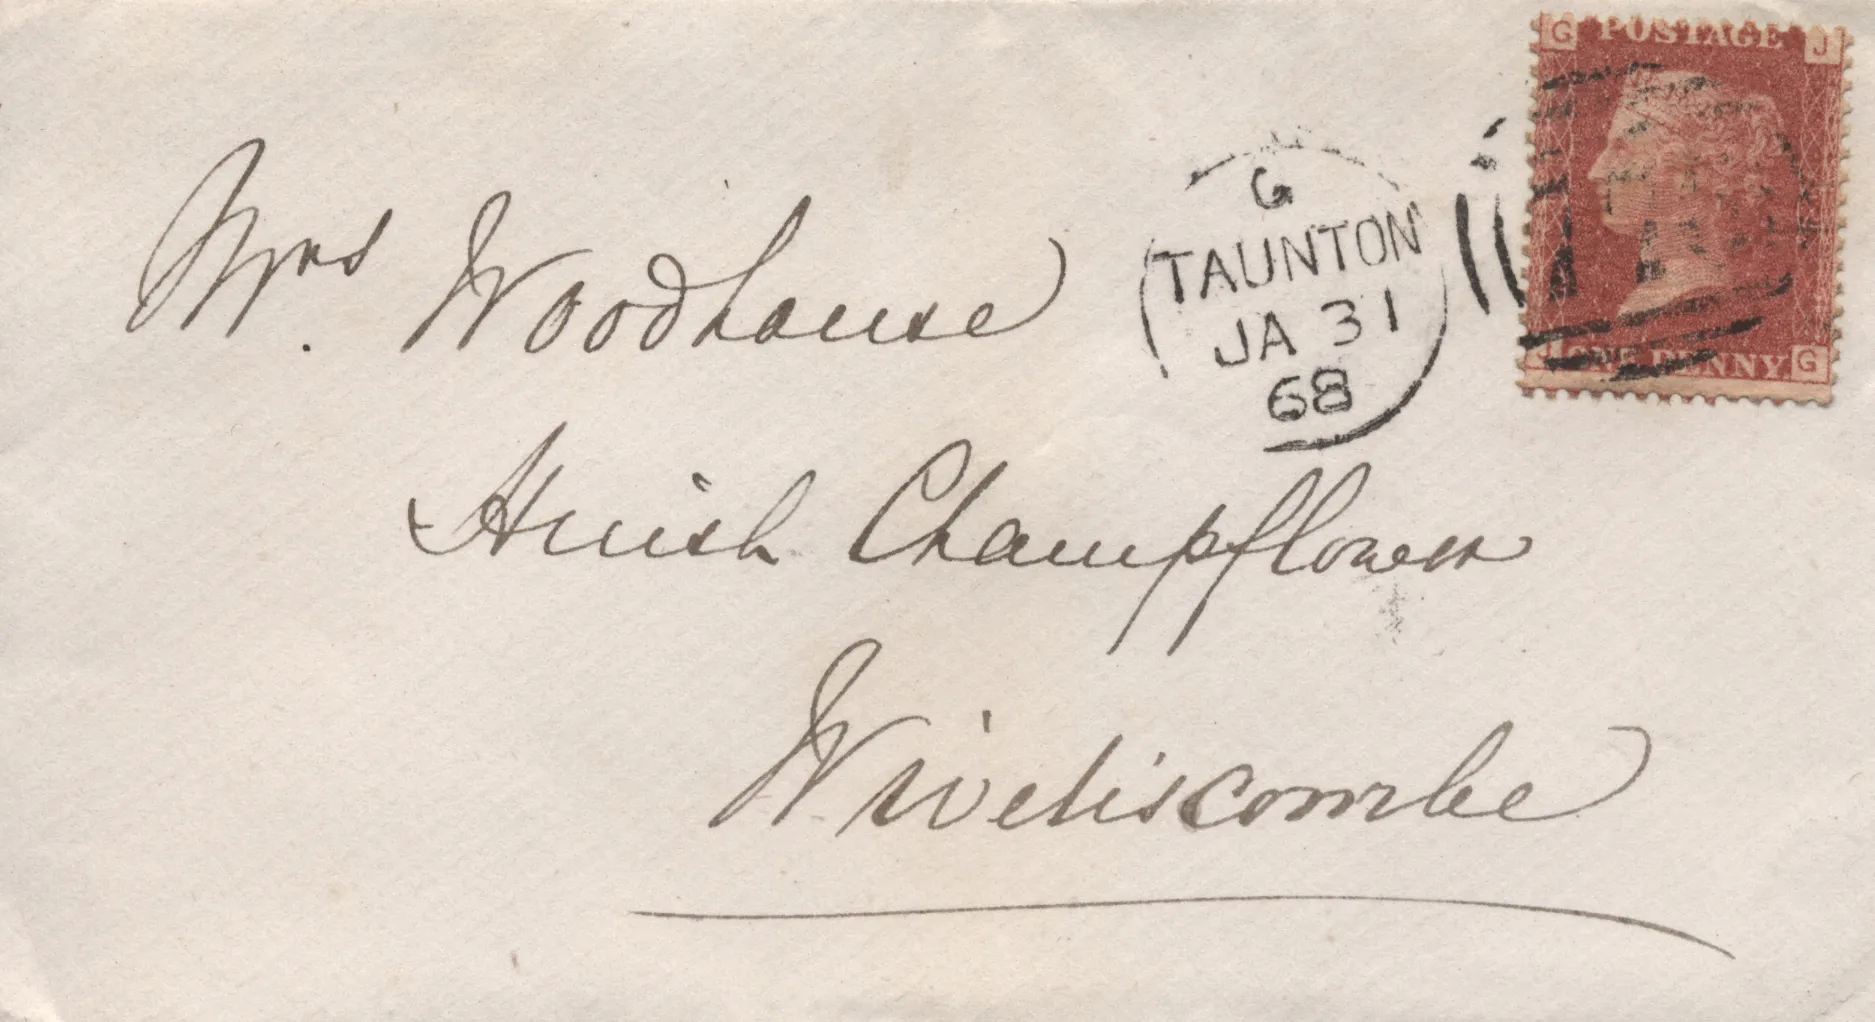 G POSTAGE J
G
TAUNTON
JA 31
68
J ONE PENNY G
Mrs. Woodhouse
Huish Champflower
Wiveliscombe